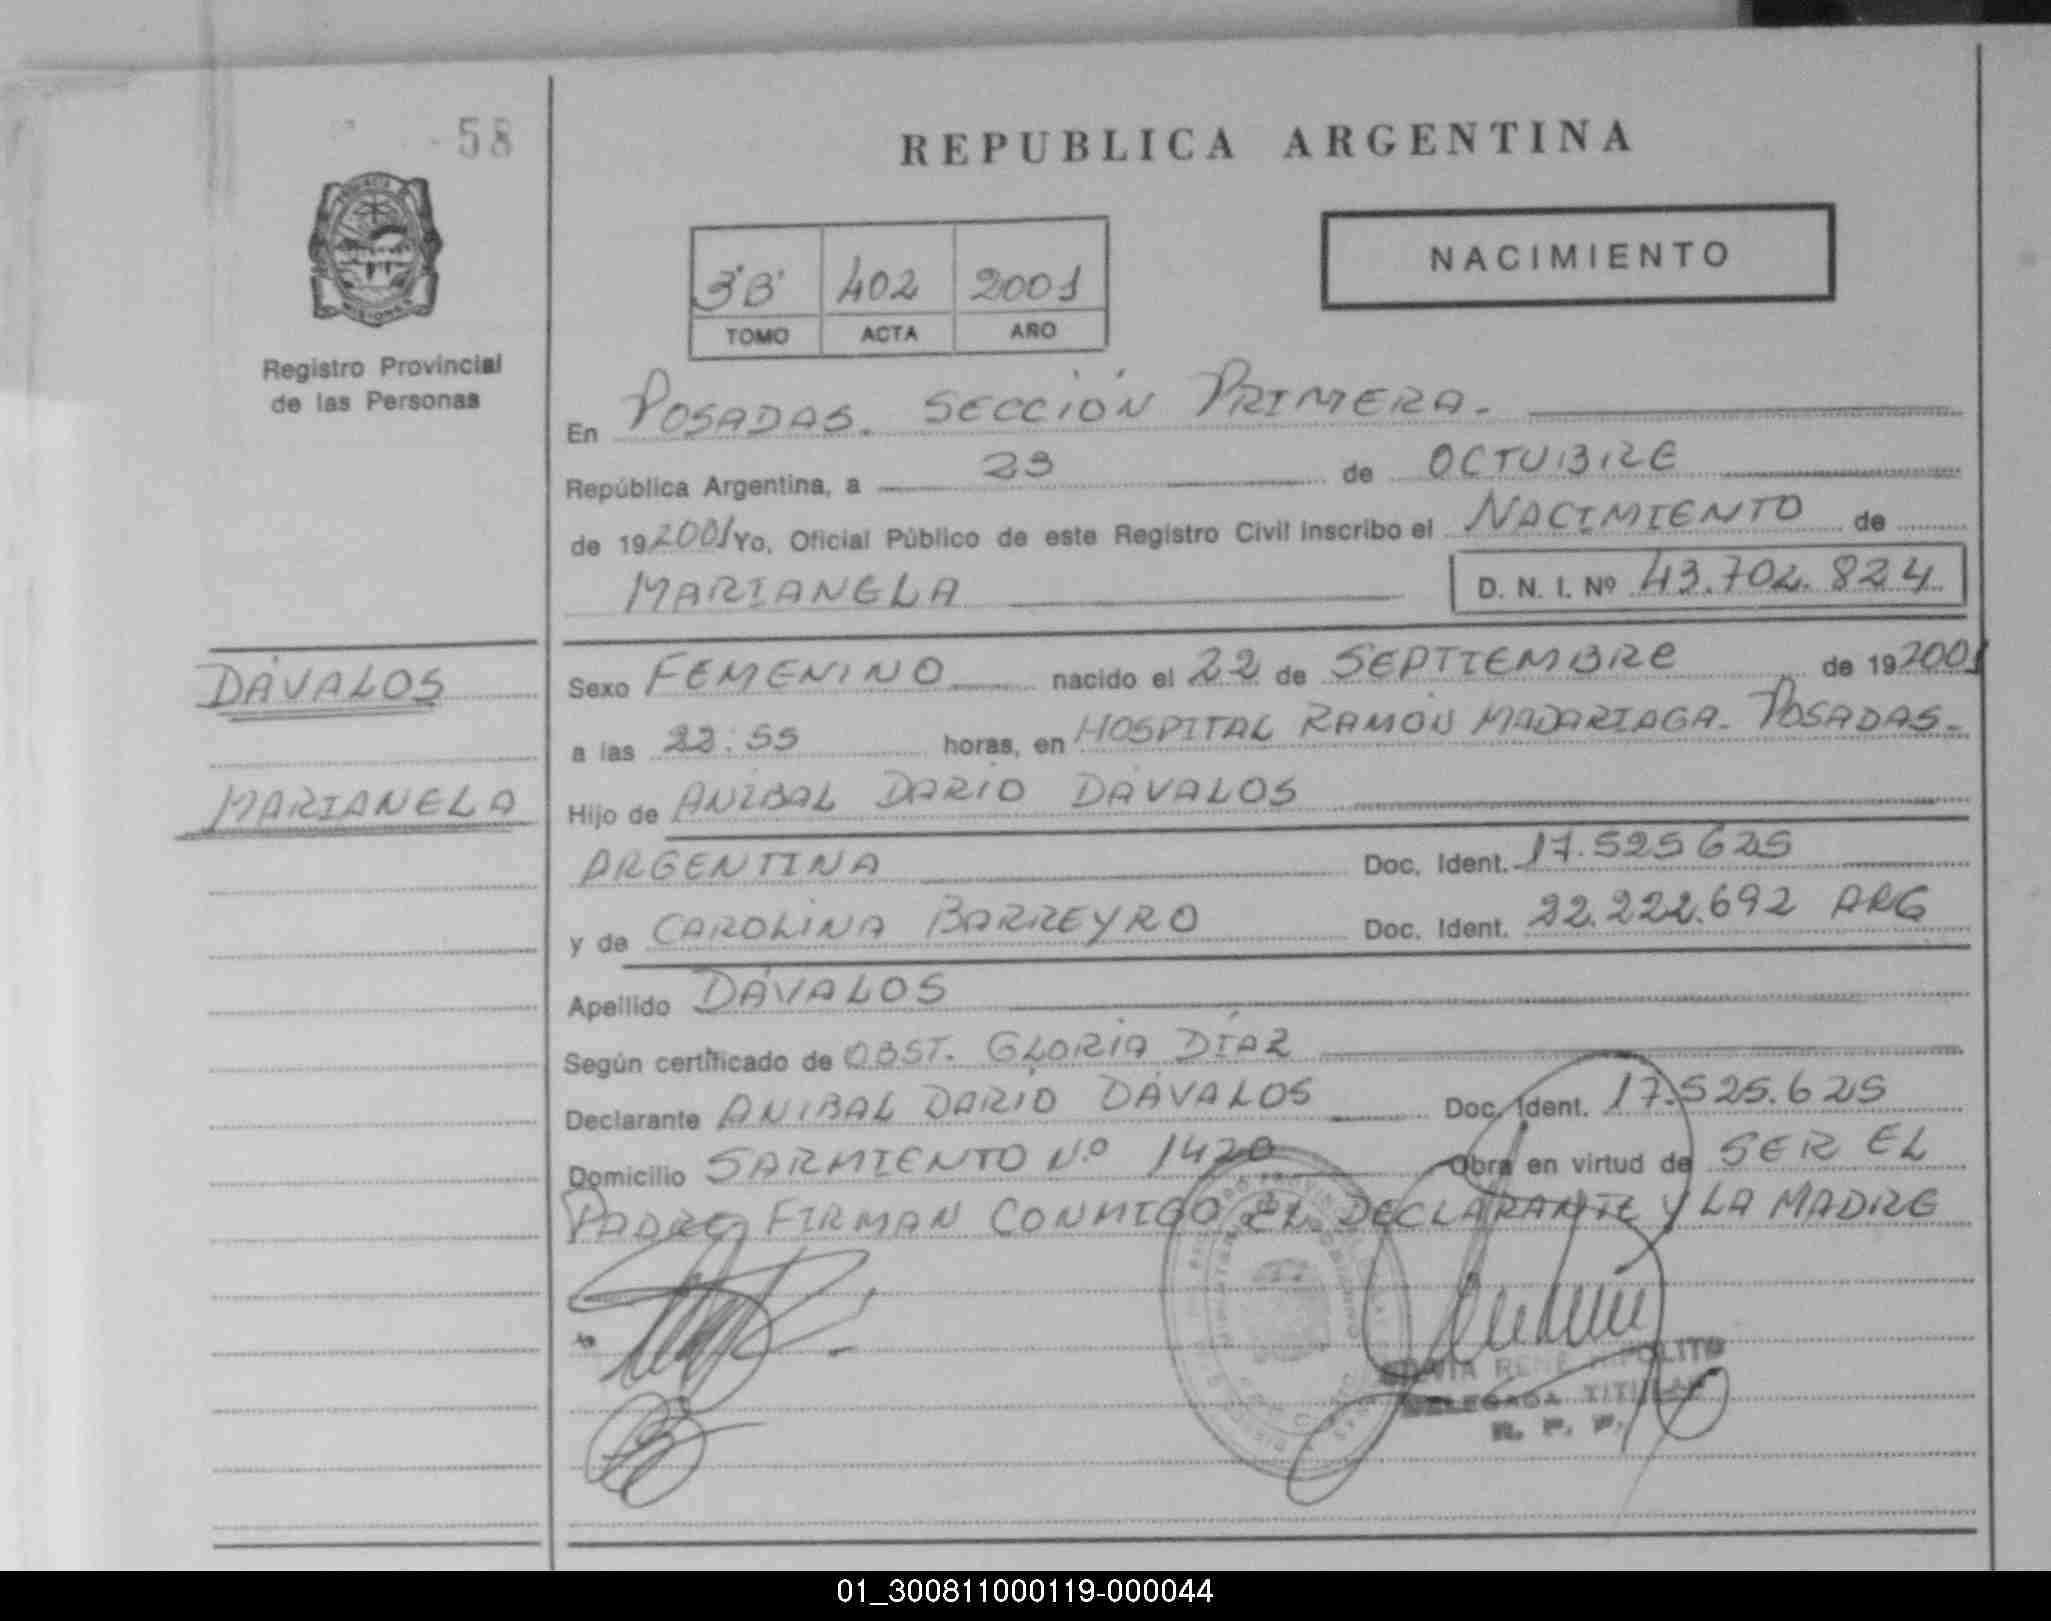 58
REPUBLICA ARGENTINA
NACIMIENTO
3'B' 402 2001
TOMO ACTA AÑO
Registro Provincial
de las Personas
En POSADAS. SECCIÓN PRIMERA.
República Argentina, a 23 de OCTUBRE
de 19 2001 Yo, Oficial Público de este Registro Civil inscribo el NACIMIENTO de
MARIANELA D. N. I. Nº 43.702.824
DÁVALOS
MARIANELA
Sexo FEMENINO nacido el 22 de SEPTIEMBRE de 19 2001
a las 22:55 horas, en HOSPITAL RAMÓN MADARIAGA. POSADAS.
Hijo de ANÍBAL DARÍO DÁVALOS
ARGENTINA Doc. Ident. 17.525625
y de CAROLINA BARREYRO Doc. Ident. 22.222.692 ARG
Apellido DÁVALOS
Según certificado de OBST. GLORIA DÍAZ
Declarante ANIBAL DARÍO DÁVALOS Doc. Ident. 17.525.625
Domicilio SARMIENTO N.º 1420 Obra en virtud de SER EL
PADRE, FIRMAN CONMIGO EL DECLARANTE Y LA MADRE
RENÉ HIPOLITO
DELEGADA TITULAR
R. P. P.
01_300811000119-000044